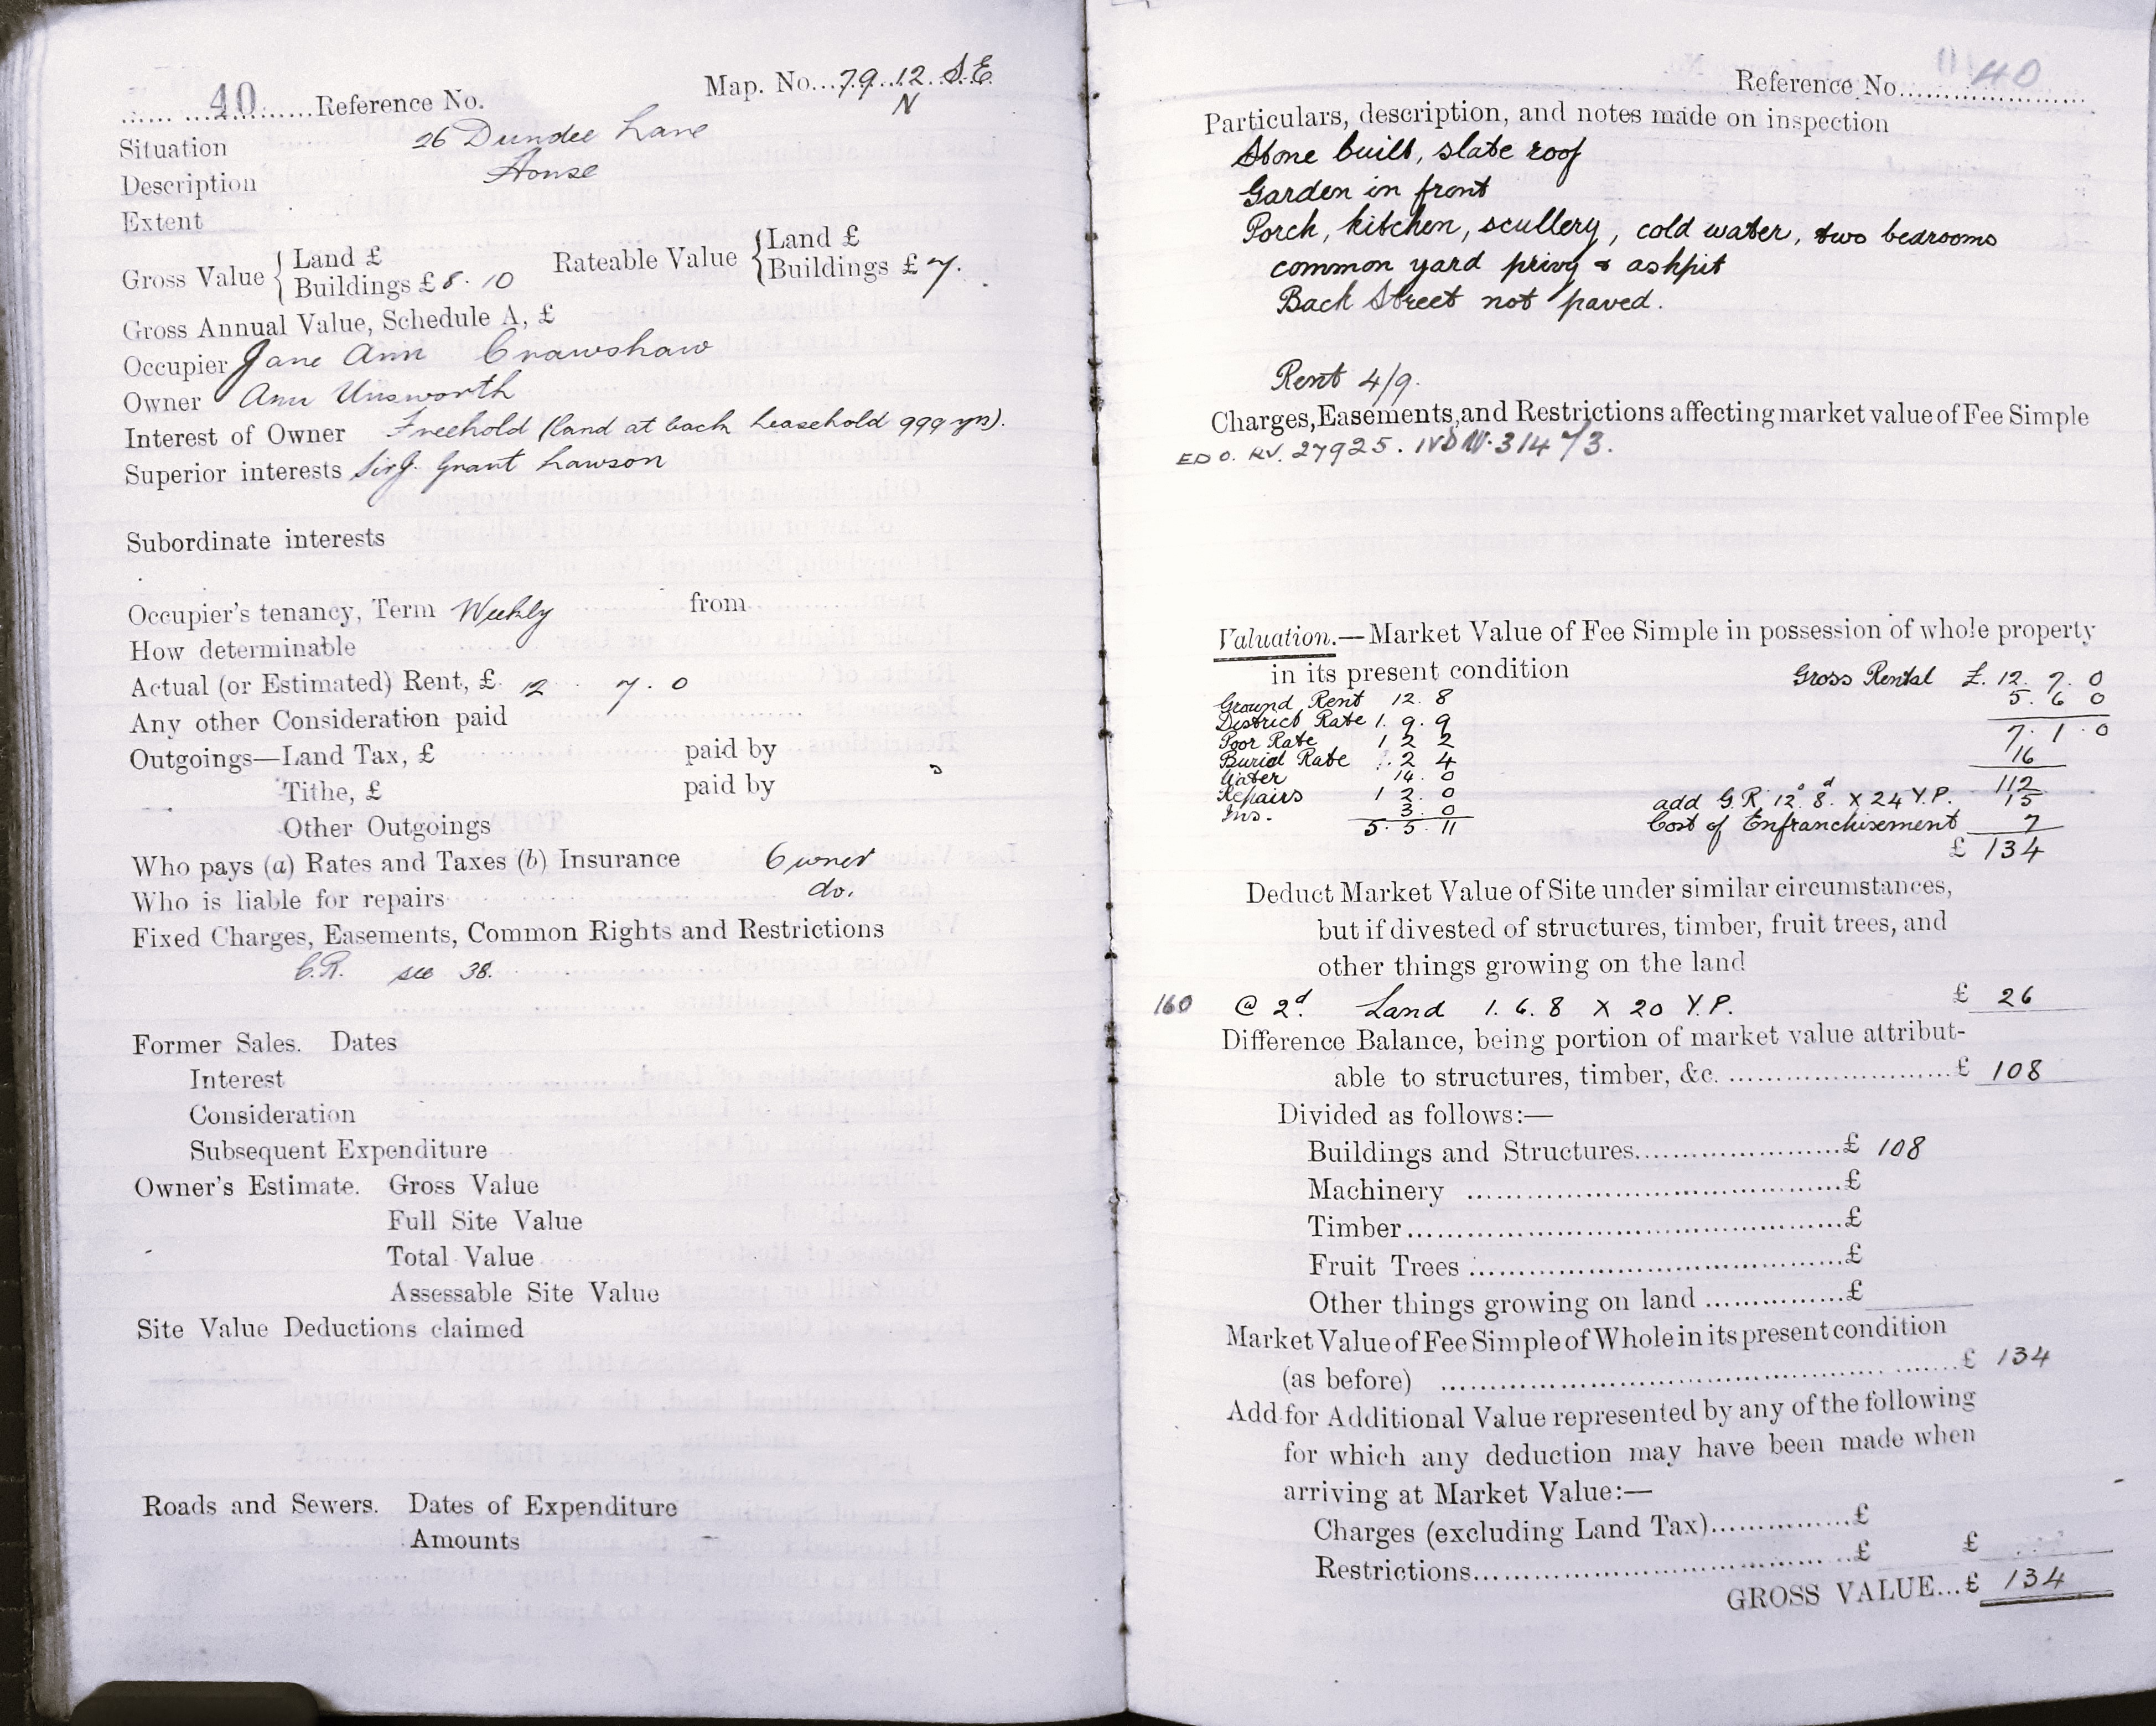 40 Reference No. Map. No. 79.12. S.E.
N
Situation 26 Dundee Lane
Description House
Extent
Gross Value { Land £ Rateable Value { Land £
Buildings £ 8. 10 Buildings £ 7.
Gross Annual Value, Schedule A, £
Occupier Jane Ann Crawshaw
Owner Ann Unsworth
Interest of Owner Freehold (land at back Leasehold 999 yrs).
Superior interests Sir J. Grant Lawson
Subordinate interests
Occupier's tenancy, Term Weekly from
How determinable
Actual (or Estimated) Rent, £ 12 7. 0
Any other Consideration paid
Outgoings—Land Tax, £ paid by
Tithe, £ paid by
Other Outgoings
Who pays (a) Rates and Taxes (b) Insurance Owner
Who is liable for repairs do.
Fixed Charges, Easements, Common Rights and Restrictions
see 38.
Former Sales. Dates
Interest
Consideration
Subsequent Expenditure
Owner's Estimate. Gross Value
Full Site Value
Total Value
Assessable Site Value
Site Value Deductions claimed
Roads and Sewers. Dates of Expenditure
Amounts
Reference No. 40
Particulars, description, and notes made on inspection
Stone built, slate roof
Garden in front
Porch, kitchen, scullery, cold water, two bedrooms
common yard privy & ashpit
Back Street not paved.
Rent 4/9.
Charges, Easements, and Restrictions affecting market value of Fee Simple
27925.
Valuation.—Market Value of Fee Simple in possession of whole property
in its present condition Gross Rental £. 12. 7. 0
Ground Rent 12. 8 5. 6 0
District Rate 1. 9. 9 7. 1. 0
Poor Rate 1 2 2 16
Burial Rate 2 4 112
Water 14. 0
Repairs 1 2. 0 add G.R. 12s. 8d. X 24 Y.P. 15
Ins. 3. 0 Cost of Enfranchisement 7
5. 5. 11 £ 134
Deduct Market Value of Site under similar circumstances,
but if divested of structures, timber, fruit trees, and
other things growing on the land
160 @ 2d. Land 1. 6. 8 X 20 Y.P. £ 26
Difference Balance, being portion of market value attribut-
able to structures, timber, &c. £ 108
Divided as follows:—
Buildings and Structures £ 108
Machinery £
Timber £
Fruit Trees £
Other things growing on land £
Market Value of Fee Simple of Whole in its present condition
(as before) £ 134
Add for Additional Value represented by any of the following
for which any deduction may have been made when
arriving at Market Value:—
Charges (excluding Land Tax) £
Restrictions £ £
GROSS VALUE... £ 134